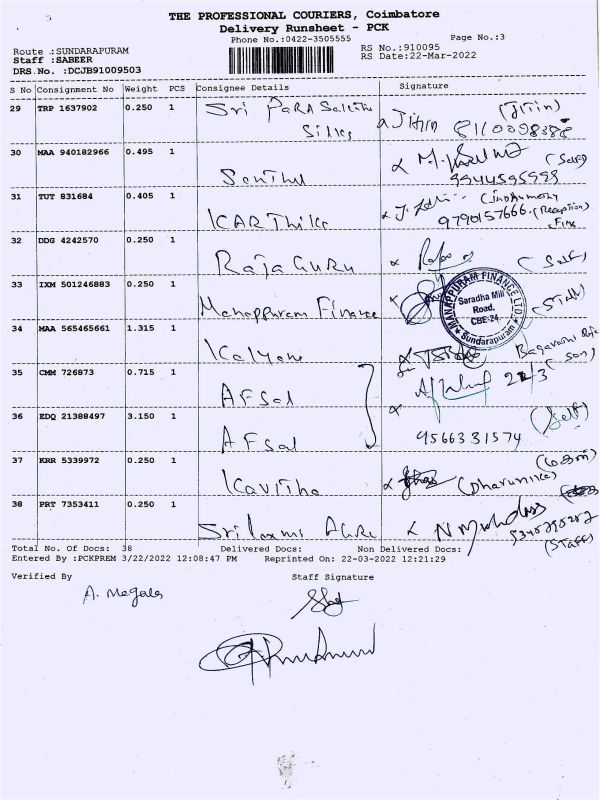 THE PROFESSIONAL COURIERS, Coimbatore
Delivery Runsheet - PCK
Phone No.:0422-3505555 Page No.:3
Route .:SUNDARAPURAM RS No.:910095
Staff :SABEER RS Date:22-Mar-2022
DRS.No. :DCJB91009503
S No Consignment No Weight PCS Consignee Details Signature
29 TRP 1637902 0.250 1 Sri
Silks Jithin (Jitin)
30 MAA 940182966 0.495 1 Senthil (Self)
31 TUT 831684 0.405 1 KARThika
9790157666 (Reception)
32 DDG 4242570 0.250 1 Raja Guru (Self)
33 IXM 501246883 0.250 1 Manappuram Finance
MANAPPURAM FINANCE LTD.
Saradha Mill
Road,
CBE-24.
Sundarapuram
34 MAA 565465661 1.315 1 Kalyani
(Son)
35 CMM 726873 0.715 1 AFSal 22/3
36 EDQ 21388497 3.150 1 AFsal (Self)
9566331574
37 KRR 5339972 0.250 1 Kavitha (மகள்)
(Dharunika)
38 PRT 7353411 0.250 1 Sri laxmi
(Staff)
Total No. Of Docs: 38 Delivered Docs: Non Delivered Docs:
Entered By :PCKPREM 3/22/2022 12:08:47 PM Reprinted On: 22-03-2022 12:21:29
Verified By Staff Signature
A. Megala